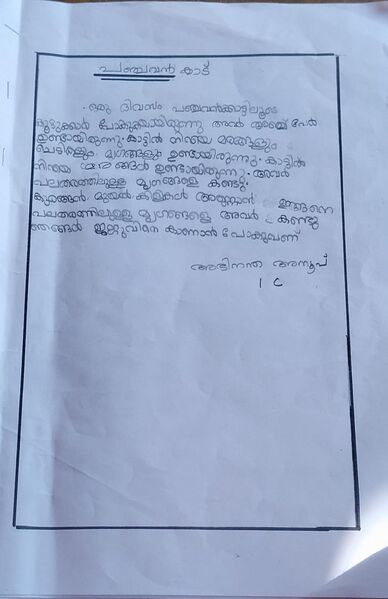 പഞ്ചവൻ കാട്
ഒരു ദിവസം പഞ്ചവൻകാട്ടിലൂടെ
കൂട്ടുക്കാർ പോകുക്കയായിരുന്നു അവർ അഞ്ച് പേർ
ഉണ്ടായിരുന്നു. കാട്ടിൽ നിറയെ മരങ്ങളും
ചെടികളും മൃഗങ്ങളും ഉണ്ടായിരുന്നു. കാട്ടിൽ
നിറയെ മരങ്ങൾ ഉണ്ടായിരുന്നു. അവർ
പലതരത്തിലുള്ള മൃഗങ്ങളെ കണ്ടു.
കുരങ്ങൻ മുയൽ കിളികൾ ഇങ്ങനെ
പലതരത്തിലുള്ള മൃഗങ്ങളെ അവർ കണ്ടു
ഞങ്ങൾ കാണാൻ പോകുവണ്
അഭിനന്ദ അനൂപ്
1 C